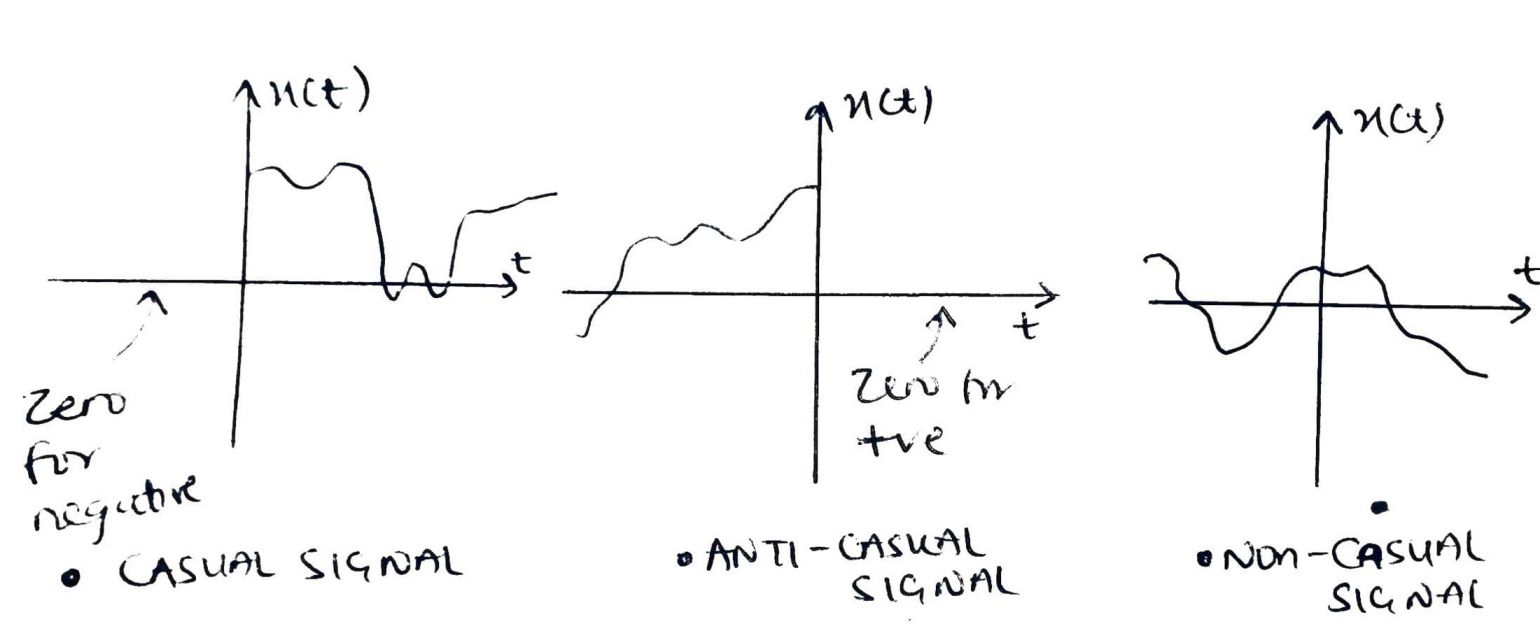 x(t)
t
zero
for
negative
• CASUAL SIGNAL
x(t)
t
zero for
+ve
• ANTI-CASUAL
SIGNAL
x(t)
t
• NON-CASUAL
SIGNAL